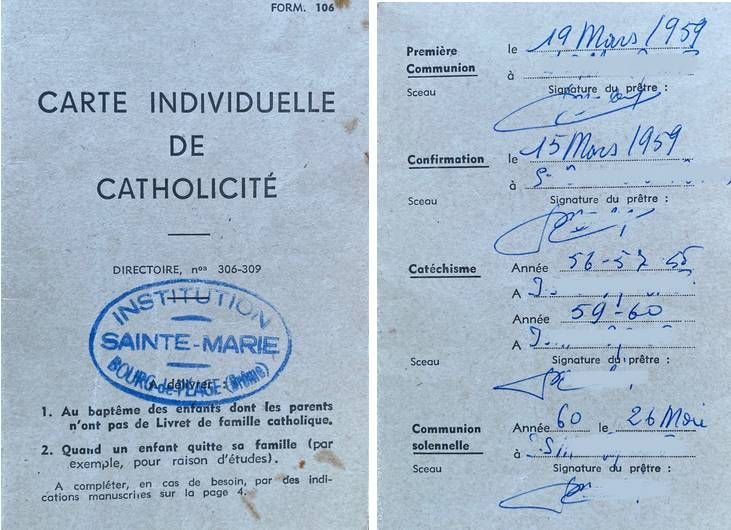 FORM. 106
CARTE INDIVIDUELLE
DE
CATHOLICITÉ
DIRECTOIRE, nos 306-309
INSTITUTION
SAINTE-MARIE
BOURG-de-PÉAGE (Drôme)
A délivrer :
1. Au baptême des enfants dont les parents
n'ont pas de Livret de famille catholique.
2. Quand un enfant quitte sa famille (par
exemple, pour raison d'études).
A compléter, en cas de besoin, par des indi-
cations manuscrites sur la page 4.
Première Communion le 19 Mars 1959
à
Sceau Signature du prêtre :
Confirmation le 15 Mars 1959
à
Sceau Signature du prêtre :
Catéchisme Année 56-57
A
Année 59-60
A
Sceau Signature du prêtre :
Communion solennelle Année 60 le 26 Mai
à
Sceau Signature du prêtre :